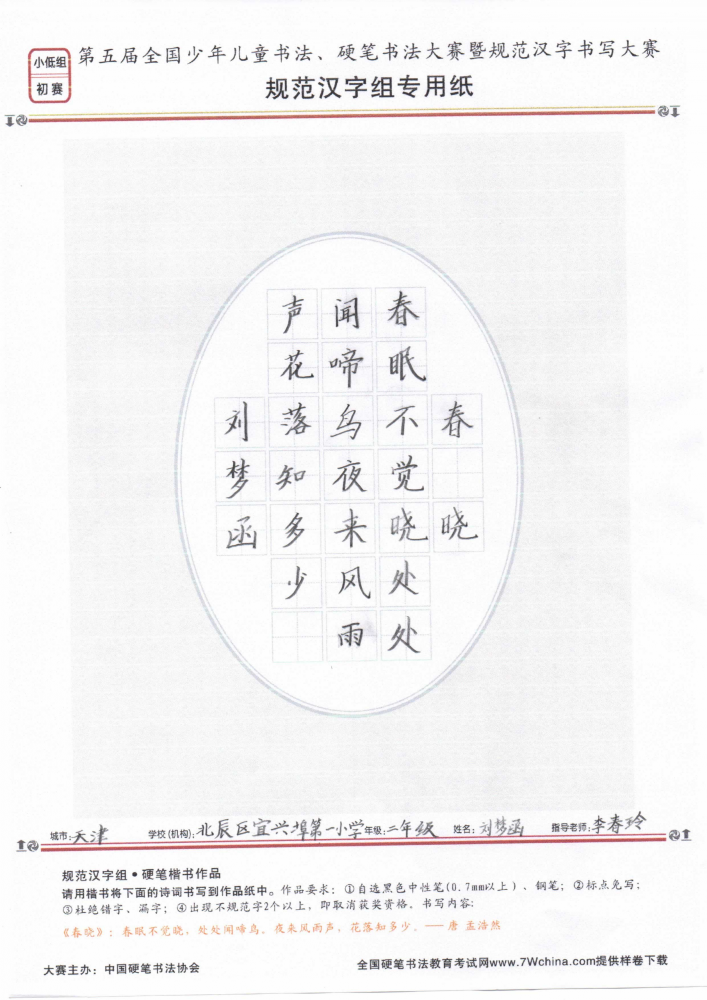 小低组
初赛
第五届全国少年儿童书法、硬笔书法大赛暨规范汉字书写大赛
规范汉字组专用纸
春 晓
春眠不觉晓处处
闻啼鸟夜来风雨
声花落知多少
刘梦函
城市:天津 学校(机构):北辰区宜兴埠第一小学 年级:二年级 姓名:刘梦函 指导老师:李春玲
规范汉字组•硬笔楷书作品
请用楷书将下面的诗词书写到作品纸中。作品要求：①自选黑色中性笔(0.7mm以上)、钢笔；②标点免写；
③杜绝错字、漏字；④出现不规范字2个以上，即取消获奖资格。书写内容:
《春晓》：春眠不觉晓，处处闻啼鸟。夜来风雨声，花落知多少。——唐 孟浩然
大赛主办：中国硬笔书法协会 全国硬笔书法教育考试网www.7Wchina.com提供样卷下载